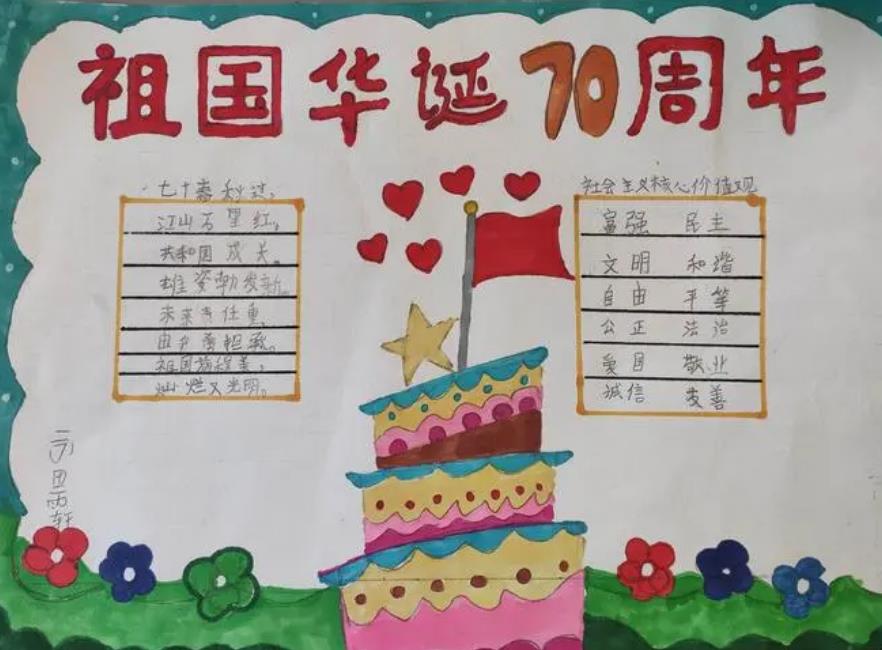 祖国华诞70周年
七十春秋过,
江山万里红,
共和国成长。
雄姿勃发新。
未来责任重,
由我勇担承。
祖国前程美,
灿烂又光明。
社会主义核心价值观
富强 民主
文明 和谐
自由 平等
公正 法治
爱国 敬业
诚信 友善
雨轩